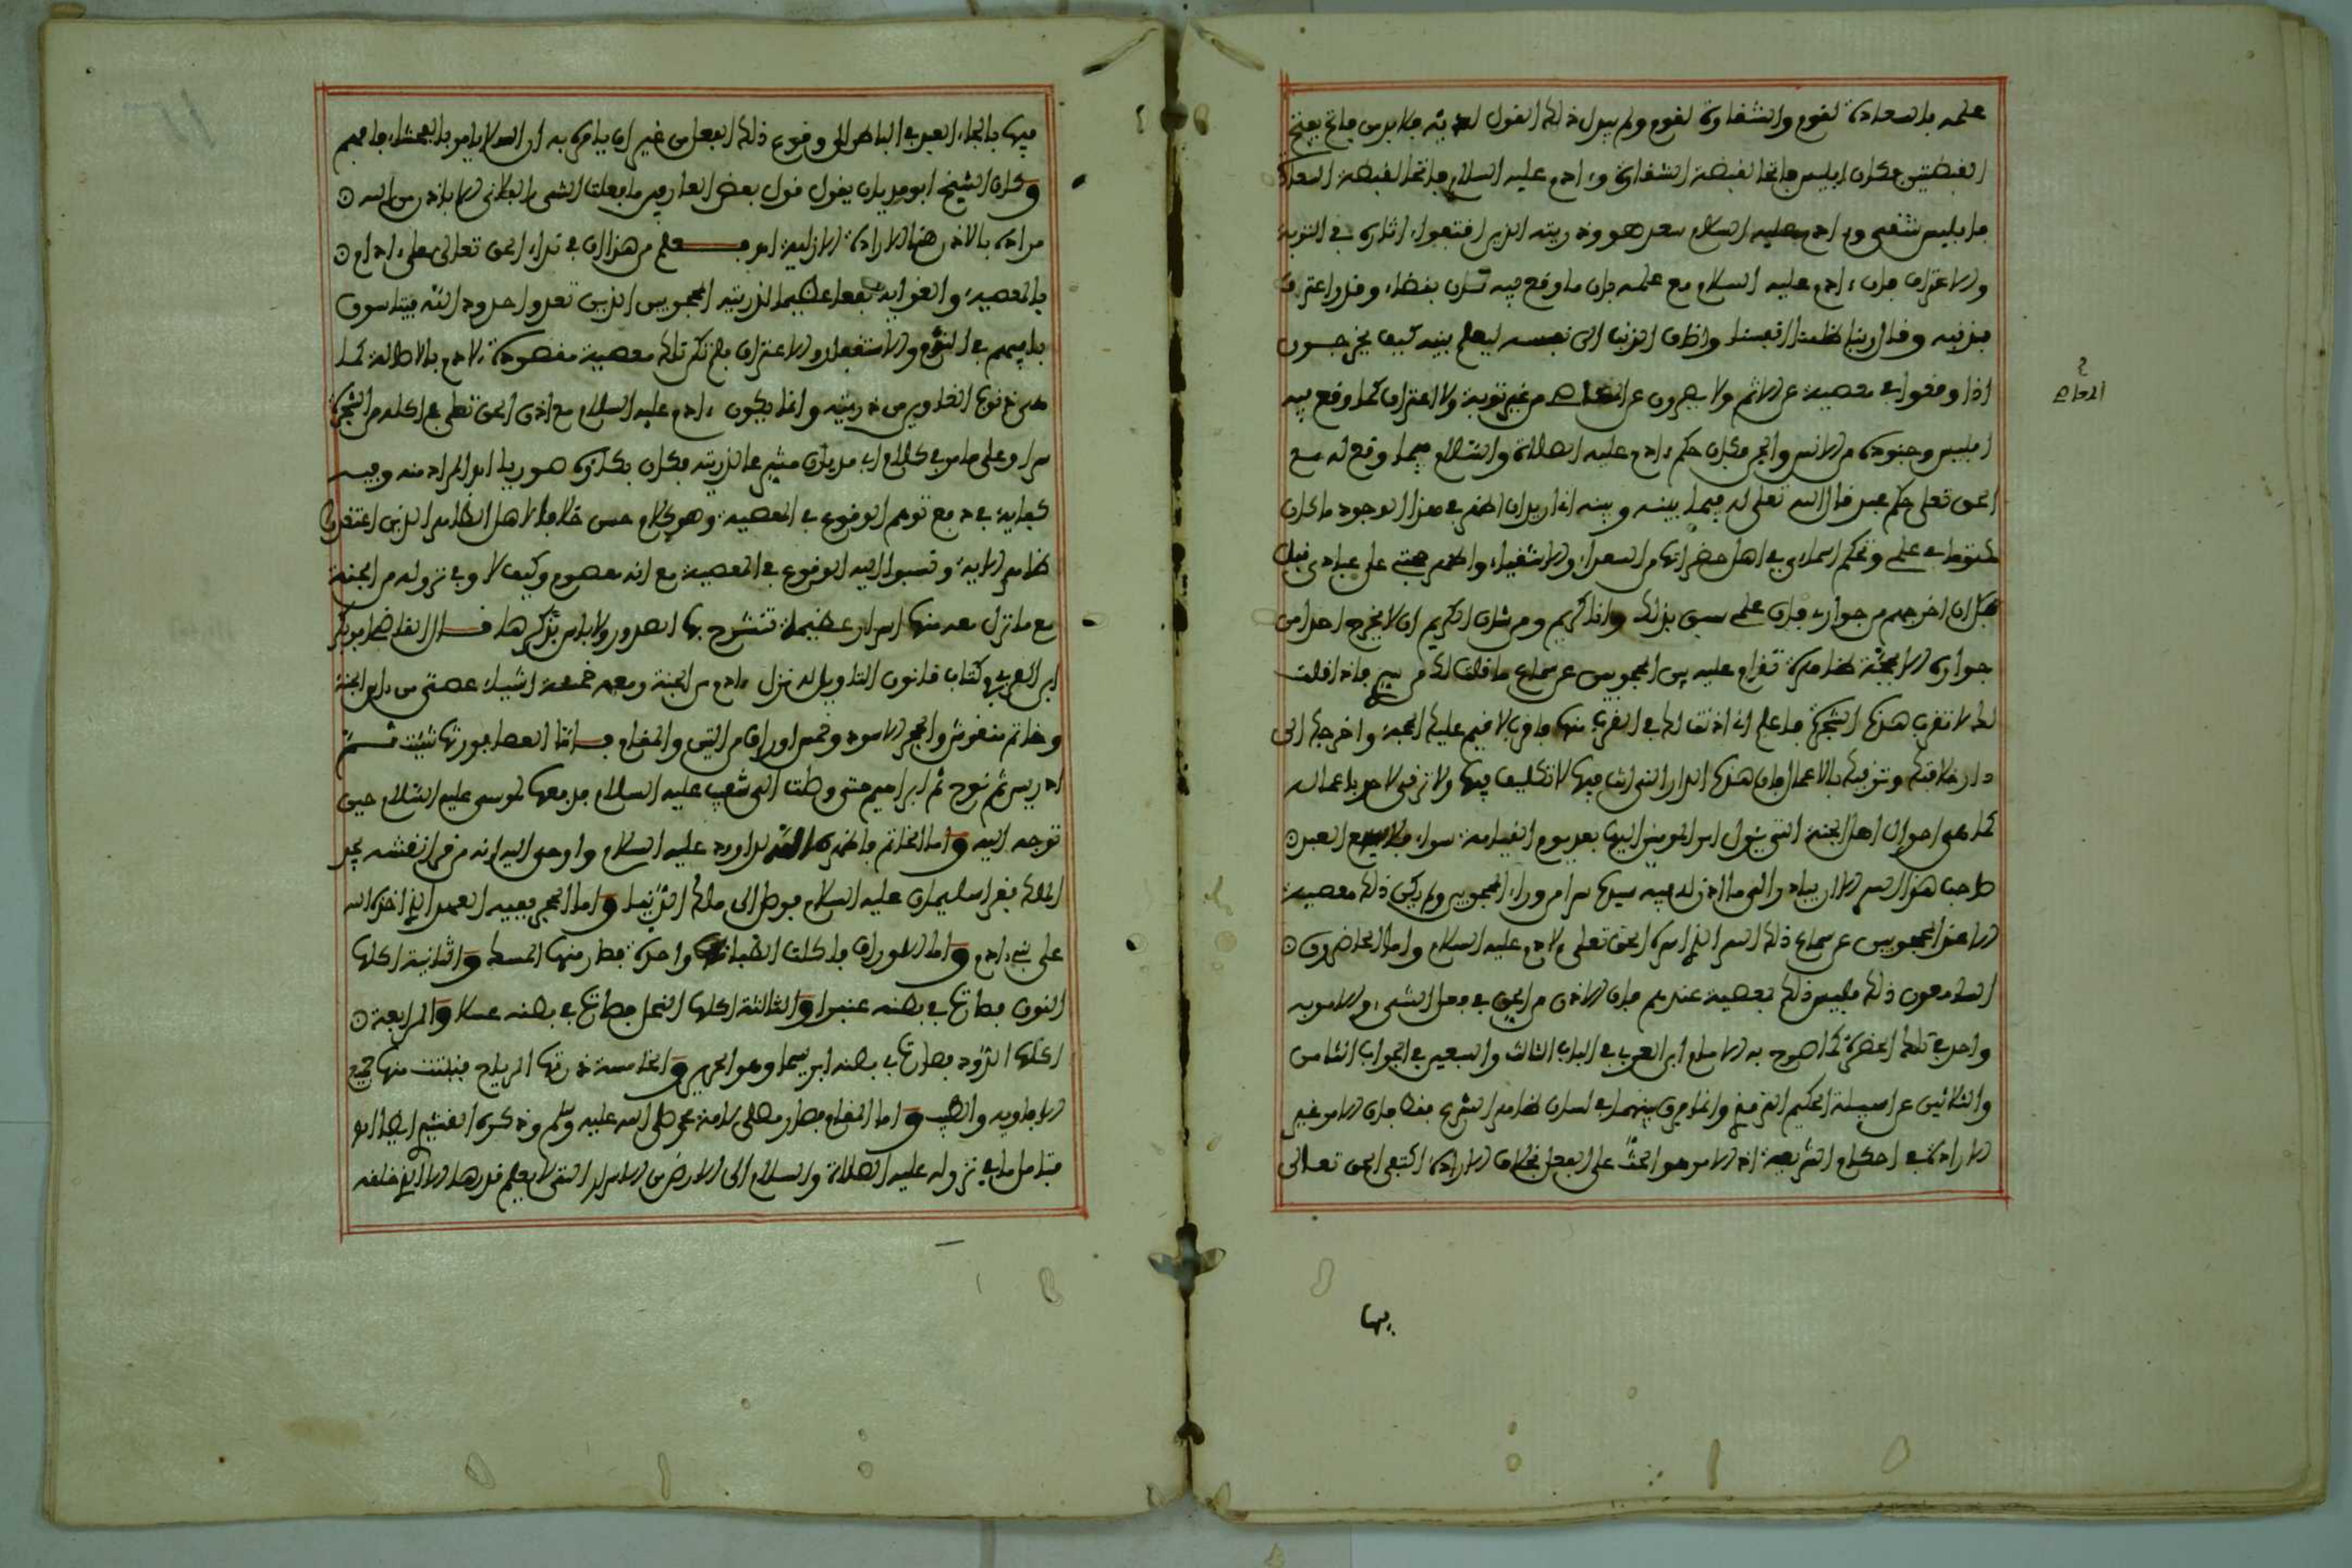 علمه بالسعادة لقوم والشقاوة لقوم ولم يبدل ذلك القول لديه فلا بد من فاتح يفتح
القبضتين فكان ابليس فاتحا لقبضة الشقاوة وءادم عليه السلام فاتحا لقبضة السعادة
فابليس شقي وءادم عليه السلام سعد هو وذريته الذين اقتفوا ءاثاره في التوبة
والاعتراف فان ءادم عليه السلام مع علمه بان ما وقع فيه كان بقضاء وقدر اعترف
بذنبه وقال ربنا ظلمنا انفسنا واضاف الذنب الى نفسه ليعلم بنيه كيف يخرجون
اذا وقعوا في معصية عن الاثم ولا يصرون عن المعاصي من غير توبة ولا اعتراف كما وقع فيه
ابليس وجنوده من الانس والجن فكان حكم ءادم عليه الصلاة والسلام فيما وقع له مع
الحق تعلى حكم عبد قال الله تعلى له فيما بينه وبينه اني اريد ان اظهر في هذا الوجود ما كان
مكنونا في علمي وتحكم اسماءي في اهل حضراتها من السعداء والاشقياء واظهر حجتي على عبادي قبل
ان اخرجهم من جواري فان علمي سبق بذلك وانا كريم ومن شان الكريم ان لا يخرج احدا من
جواره الا بحجة ظاهرة تقام عليه بين المحجوبين عن سماع ما قلت لك من بينهم فاذا قلت
لك لا تقرب هذه الشجرة فاعلم اني اذنت لك في القرب منها فاقرب لاقيم عليك الحجة واخرجك الى
دار خلافتك وترقيك بالاعمال فان هذه الدار التي انت فيها لا تكليف فيها ولا ترقي لاحد باعماله
كما هي احوال اهل الجنة التي يئول امر المومنين اليها بعد يوم القيامة سواء فلا يسع العبد
صاحب هذا السر الا ان يبادر الى ما اذن له فيه سيده سرا من وراء المحجوبين ولم يكن ذلك معصية
الا عند المحجوبين عن سماع ذلك السر الذي اسره الحق تعلى لادم عليه السلام واما الحاضرون
السامعون ذلك فليس ذلك بمعصية عندهم فان الاذن من الحق في فعل الشيء والامر به
واحد في تلك الحضرة كما صرح به الامام ابن العربي في الباب الثالث والسبعين في الجواب الثامن
والثلاثين عن اسيلة الحكيم الترمذي وانما فرق بينهما في لسان ظاهر الشرع فقط فان الامر غير
الارادة في احكام الشريعة اذ الامر هو الحث على الفعل بخلاف الارادة اكتفى الحق تعالى
الخواص
فيها
فيها بالجاء العبد في الباطن الى وقوع ذلك الفعل من غير ان يامره به ان الله لا يامر بالفحشاء فافهم
وكان الشيخ ابو مدين يقول قول بعض العارفين ما فعلت الشيء الفلاني الا باذن من الله
مراده بالاذن هنا الارادة الازلية انتهى فعلم من هذا ان في نداء الحق تعالى على ءادم
بالمعصية والغواية نفعا عظيما لذريته المحجوبين الذين تعدوا حدود الله فيتاسون
بابيهم في الندم والاستغفار والاعتراف فلم تكن تلك معصية مقصودة لادم بالاصالة كما
هي في نوع المخلوين من ذريته وانما يكون ءادم عليه السلام مع اذن الحق تعلى في اكله من الشجرة
سرا وعلى ما مر في كلام ابي مدين مشيرا لذريته فكان بكاؤه صوريا انتهى المراد منه وفيه
كفاية في دفع توهم الوقوع في المعصية وهو كلام حسن خلافا لاهل الظاهر الذين اعتقدوا
ظاهر الاية ونسبوا اليه الوقوع في المعصية مع انه معصوم وكيف لا وفي نزوله من الجنة
مع ما نزل معه منها اسرار عظيمة تنشرح بها الصدور ولا باس بذكرها قال القاضي ابو بكر
ابن العربي في كتاب قانون التاويل له نزل ءادم من الجنة ومعه خمسة اشياء عصى من ءاس الجنة
وخاتم منقوش والحجر الاسود وخمس اوراق من التين والمقام فاما العصا فورثها شيت ثم
ادريس ثم نوح ثم ابراهيم حتى وصلت الى شعيب عليه السلام فدفعها لموسى عليه السلام حين
توجه اليه واما الخاتم فاظهره الله لداوود عليه السلام واوحى اليه انه من قرا نقشه يجد
الملك فقراه سليمان عليه السلام فوصل الى ملك الدنيا واما الحجر ففيه العهد الذي اخذه الله
على بني ءادم واما الاوراق فاكلت الظبا واحدة فصار منها المسك والثانية اكلها
النون فصارت في بطنه عنبرا والثالثة اكلها النحل فصارت في بطنه عسلا والرابعة
اكلها الدود فصارت في بطنه ابريسما وهو الحرير والخامسة ذرتها الرياح فنبتت منها جميع
الافاويه والطيب واما المقام فصار مصلى لامة محمد صلى الله عليه وسلم وذكره القشيري ايضا
فتامل ما في نزوله عليه الصلاة والسلام الى الارض من الاسرار التي لا يعلم قدرها الا الذي خلقه